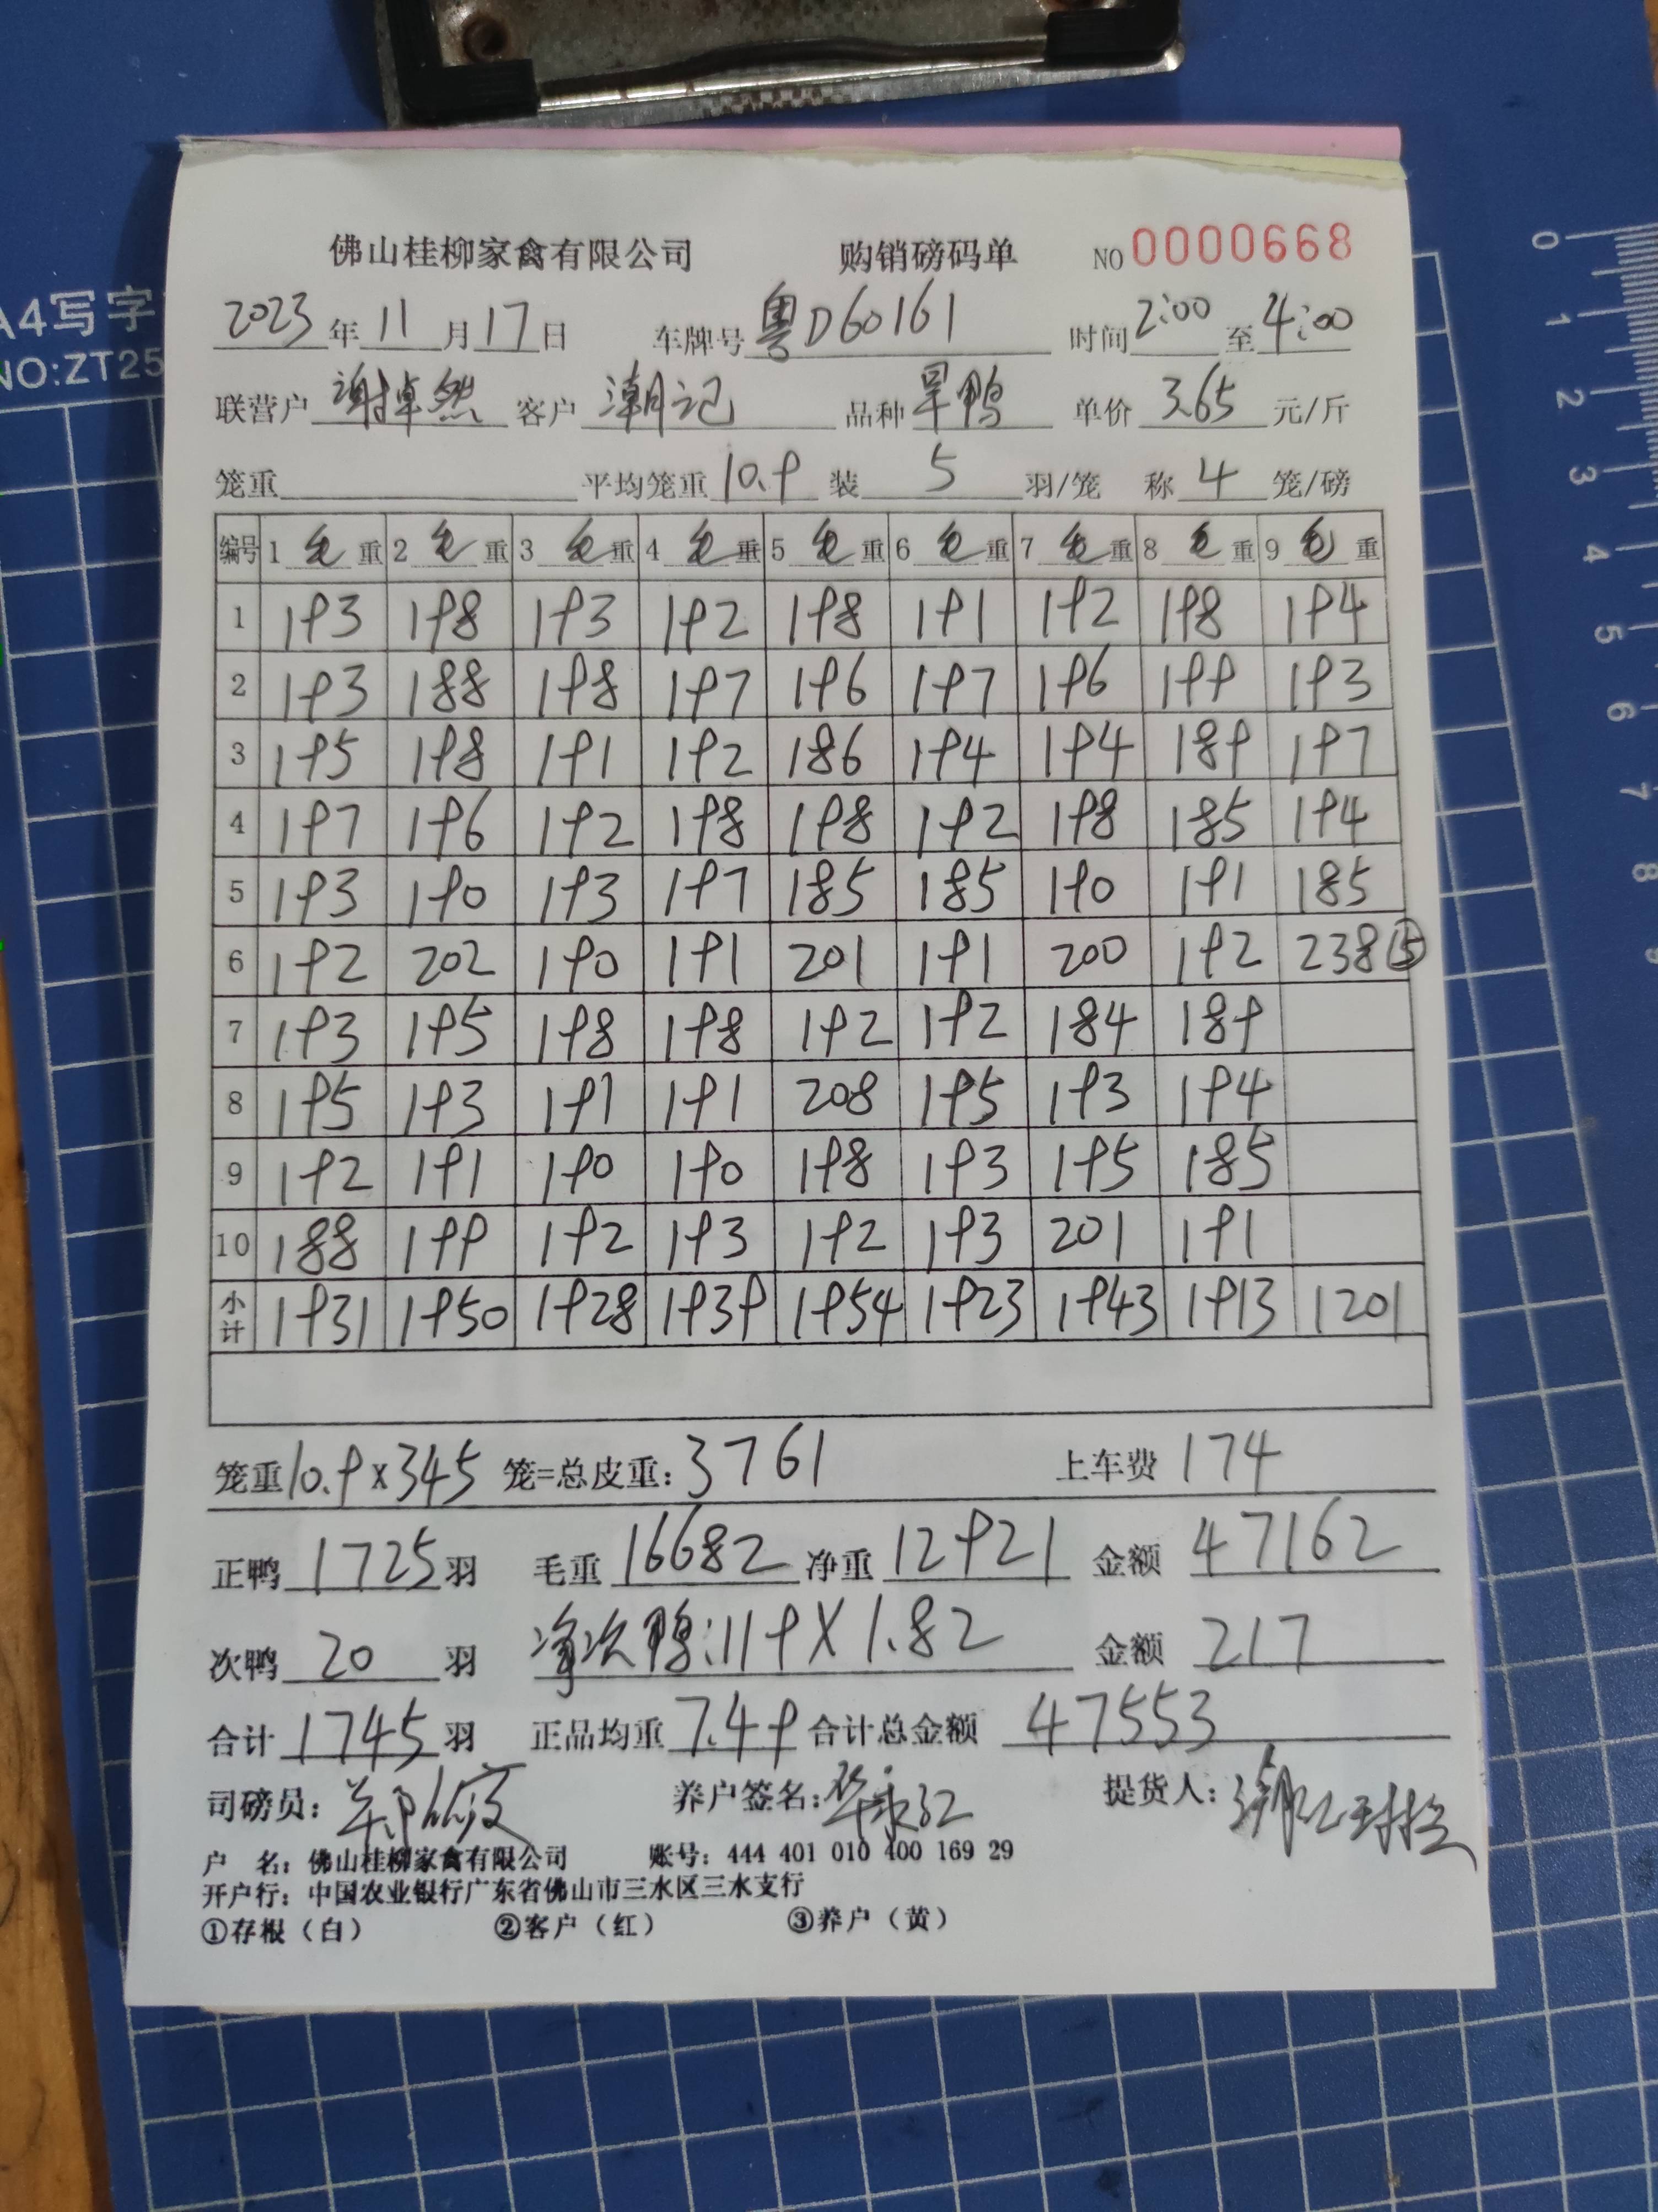 A4写字
NO:ZT25
佛山桂柳家禽有限公司 购销磅码单 NO 0000668
2023年11月17日 车牌号 粤D60161 时间 2:00 至 4:00
联营户 谢掉然 客户 潮记 品种 旱鸭 单价 3.65 元/斤
笼重 平均笼重 10.9 装 5 羽/笼 称 4 笼/磅
编号 1 毛重 2 毛重 3 毛重 4 毛重 5 毛重 6 毛重 7 毛重 8 毛重 9 毛重
1 193 198 193 192 198 191 192 198 194
2 193 188 198 197 196 197 196 199 193
3 195 198 191 192 186 194 194 189 197
4 197 196 192 198 198 192 198 185 194
5 193 190 193 197 185 185 190 191 185
6 192 202 190 191 201 191 200 192 238 ⑮
7 193 195 198 198 192 192 184 189
8 195 193 191 191 208 195 193 194
9 192 191 190 190 198 193 195 185
10 188 199 192 193 192 193 201 191
小计 1931 1950 1928 1939 1954 1923 1943 1913 1201
笼重 10.9 x 345 笼=总皮重: 3761 上车费 174
正鸭 1725 羽 毛重 16682 净重 12921 金额 47162
次鸭 20 羽 净次鸭:119 X 1.82 金额 217
合计 1745 羽 正品均重 7.49 合计总金额 47553
司磅员: 养户签名: 提货人:
户 名: 佛山桂柳家禽有限公司 账号: 444 401 010 400 169 29
开户行: 中国农业银行广东省佛山市三水区三水支行
①存根（白） ②客户（红） ③养户（黄）
0
1
2
3
4
5
6
7
8
9